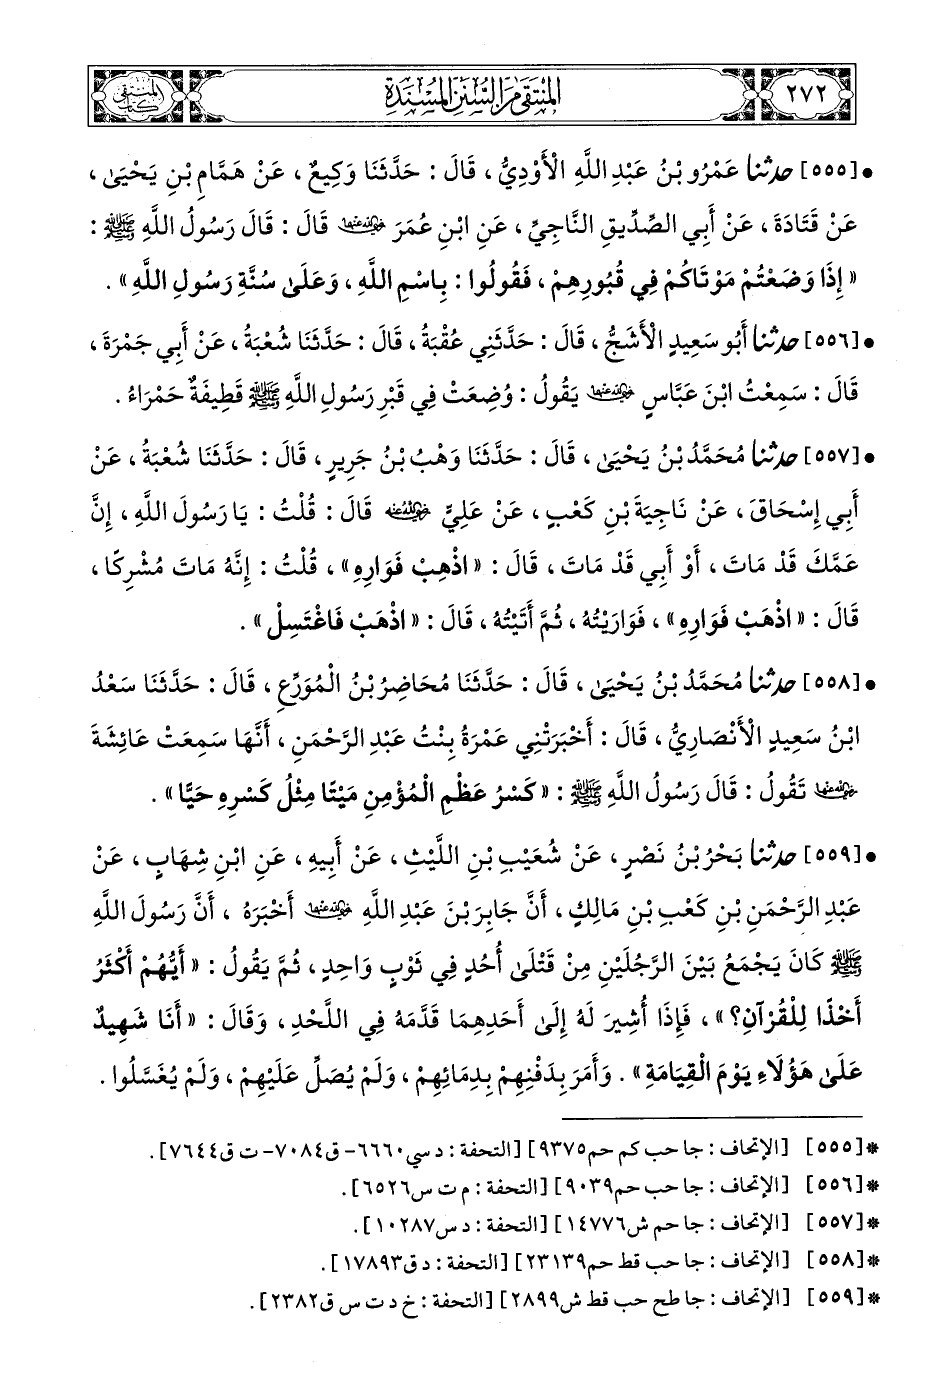 ٢٧٢
المنتقى من السنن المسندة
كتاب المنتقى
• [٥٥٥] حدثنا عَمْرُو بْنُ عَبْدِ اللَّهِ الْأَوْدِيُّ، قَالَ: حَدَّثَنَا وَكِيعٌ، عَنْ هَمَّامِ بْنِ يَحْيَىٰ،
عَنْ قَتَادَةَ، عَنْ أَبِي الصِّدِّيقِ النَّاجِيِّ، عَنِ ابْنِ عُمَرَ رضي الله عنهما قَالَ: قَالَ رَسُولُ اللَّهِ ﷺ:
«إِذَا وَضَعْتُمْ مَوْتَاكُمْ فِي قُبُورِهِمْ، فَقُولُوا: بِاسْمِ اللَّهِ، وَعَلَىٰ سُنَّةِ رَسُولِ اللَّهِ».
• [٥٥٦] حدثنا أَبُو سَعِيدٍ الْأَشَجُّ، قَالَ: حَدَّثَنِي عُقْبَةُ، قَالَ: حَدَّثَنَا شُعْبَةُ، عَنْ أَبِي جَمْرَةَ،
قَالَ: سَمِعْتُ ابْنَ عَبَّاسٍ رضي الله عنهما يَقُولُ: وُضِعَتْ فِي قَبْرِ رَسُولِ اللَّهِ ﷺ قَطِيفَةٌ حَمْرَاءُ.
• [٥٥٧] حدثنا مُحَمَّدُ بْنُ يَحْيَىٰ، قَالَ: حَدَّثَنَا وَهْبُ بْنُ جَرِيرٍ، قَالَ: حَدَّثَنَا شُعْبَةُ، عَنْ
أَبِي إِسْحَاقَ، عَنْ نَاجِيَةَ بْنِ كَعْبٍ، عَنْ عَلِيٍّ رضي الله عنه قَالَ: قُلْتُ: يَا رَسُولَ اللَّهِ، إِنَّ
عَمَّكَ قَدْ مَاتَ، أَوْ أَبِي قَدْ مَاتَ، قَالَ: «اذْهَبْ فَوَارِهِ»، قُلْتُ: إِنَّهُ مَاتَ مُشْرِكًا،
قَالَ: «اذْهَبْ فَوَارِهِ»، فَوَارَيْتُهُ، ثُمَّ أَتَيْتُهُ، قَالَ: «اذْهَبْ فَاغْتَسِلْ».
• [٥٥٨] حدثنا مُحَمَّدُ بْنُ يَحْيَىٰ، قَالَ: حَدَّثَنَا مُحَاضِرُ بْنُ الْمُوَرِّعِ، قَالَ: حَدَّثَنَا سَعْدُ
ابْنُ سَعِيدٍ الْأَنْصَارِيُّ، قَالَ: أَخْبَرَتْنِي عَمْرَةُ بِنْتُ عَبْدِ الرَّحْمَنِ، أَنَّهَا سَمِعَتْ عَائِشَةَ
رضي الله عنها تَقُولُ: قَالَ رَسُولُ اللَّهِ ﷺ: «كَسْرُ عَظْمِ الْمُؤْمِنِ مَيْتًا مِثْلُ كَسْرِهِ حَيًّا».
• [٥٥٩] حدثنا بَحْرُ بْنُ نَصْرٍ، عَنْ شُعَيْبِ بْنِ اللَّيْثِ، عَنْ أَبِيهِ، عَنِ ابْنِ شِهَابٍ، عَنْ
عَبْدِ الرَّحْمَنِ بْنِ كَعْبِ بْنِ مَالِكٍ، أَنَّ جَابِرَ بْنَ عَبْدِ اللَّهِ رضي الله عنهما أَخْبَرَهُ، أَنَّ رَسُولَ اللَّهِ
ﷺ كَانَ يَجْمَعُ بَيْنَ الرَّجُلَيْنِ مِنْ قَتْلَىٰ أُحُدٍ فِي ثَوْبٍ وَاحِدٍ، ثُمَّ يَقُولُ: «أَيُّهُمْ أَكْثَرُ
أَخْذًا لِلْقُرْآنِ؟»، فَإِذَا أُشِيرَ لَهُ إِلَىٰ أَحَدِهِمَا قَدَّمَهُ فِي اللَّحْدِ، وَقَالَ: «أَنَا شَهِيدٌ
عَلَىٰ هَؤُلَاءِ يَوْمَ الْقِيَامَةِ». وَأَمَرَ بِدَفْنِهِمْ بِدِمَائِهِمْ، وَلَمْ يُصَلِّ عَلَيْهِمْ، وَلَمْ يُغَسَّلُوا.
*[٥٥٥] [الإتحاف: جا حب كم حم٩٣٧٥] [التحفة: د سي ٦٦٦٠- ق٧٠٨٤- ت ق٧٦٤٤].
*[٥٥٦] [الإتحاف: جا حب حم٩٠٣٩] [التحفة: م ت س٦٥٢٦].
*[٥٥٧] [الإتحاف: جا حم ش١٤٧٧٦] [التحفة: د س١٠٢٨٧].
*[٥٥٨] [الإتحاف: جا حب قط حم٢٣١٣٩] [التحفة: د ق١٧٨٩٣].
*[٥٥٩] [الإتحاف: جا طح حب قط ش٢٨٩٩] [التحفة: خ د ت س ق٢٣٨٢].